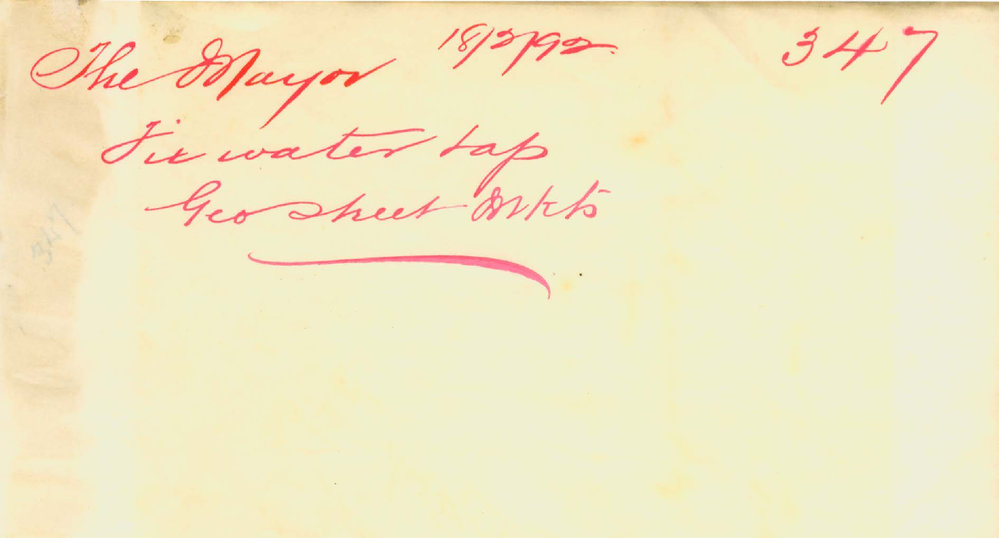 The Mayor 18/2/92 347
Fix water tap
Geo street Mkts
347